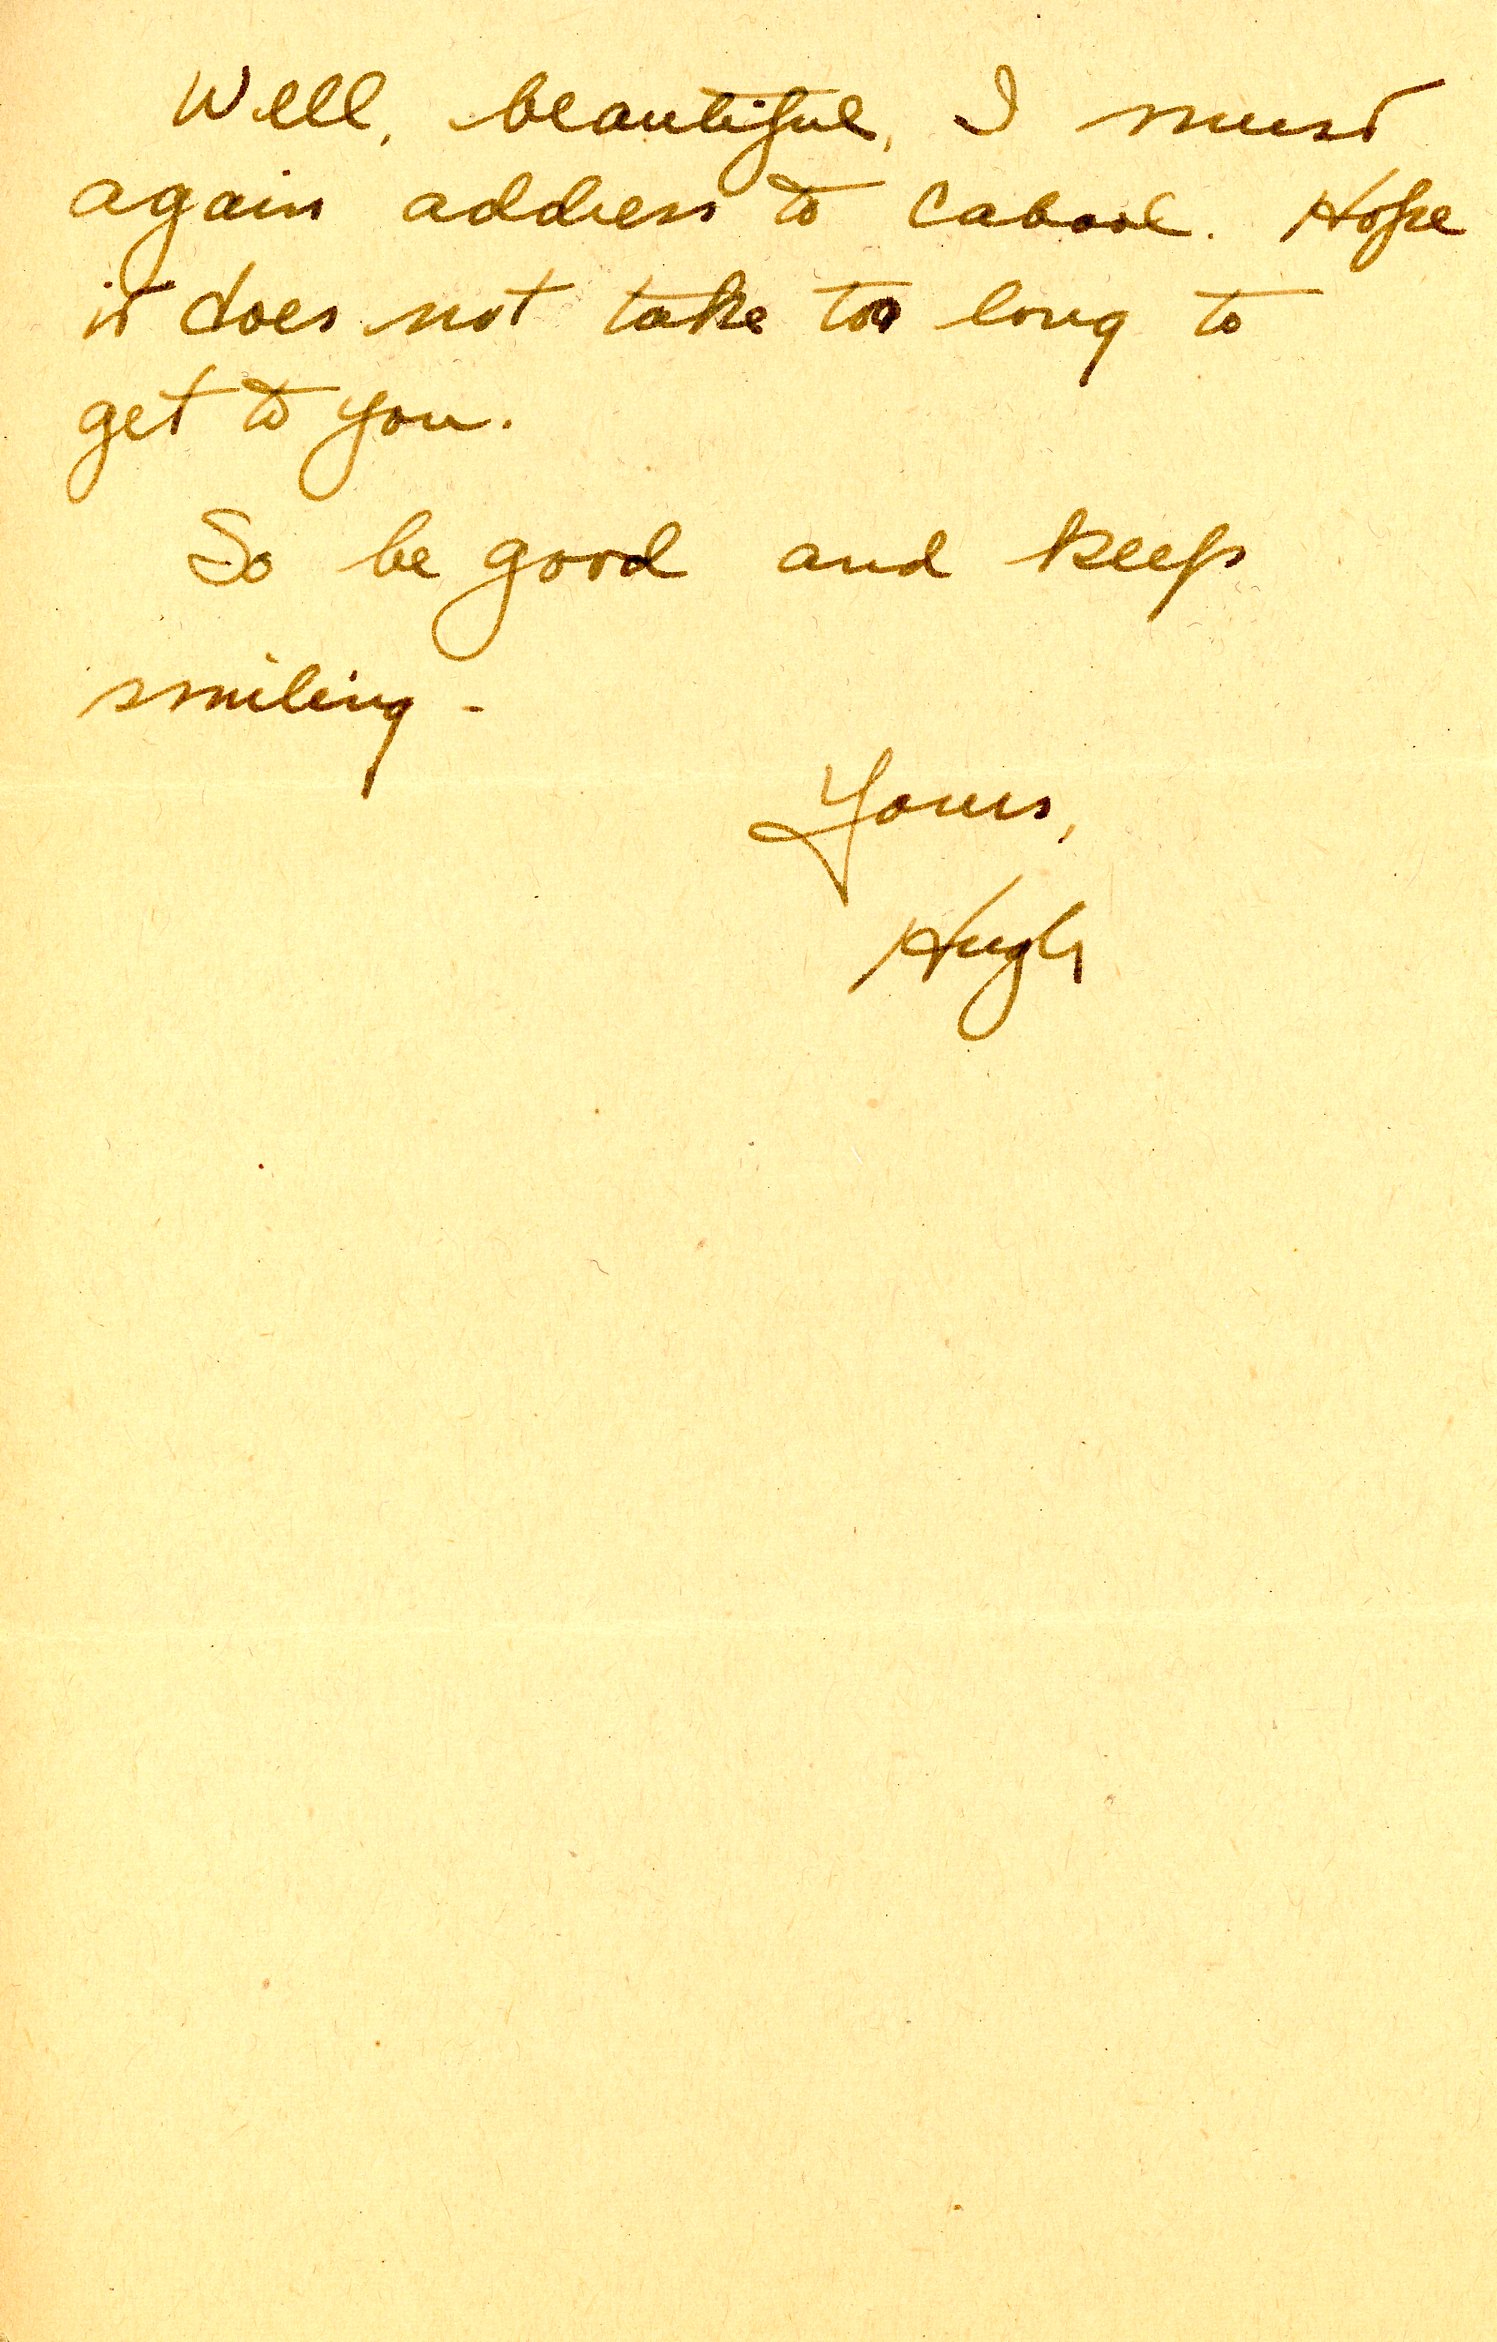 Well, beautiful, I must
again address to Cabool. Hope
it does not take too long to
get to you.
So be good and keep
smiling -
Yours,
Hugh